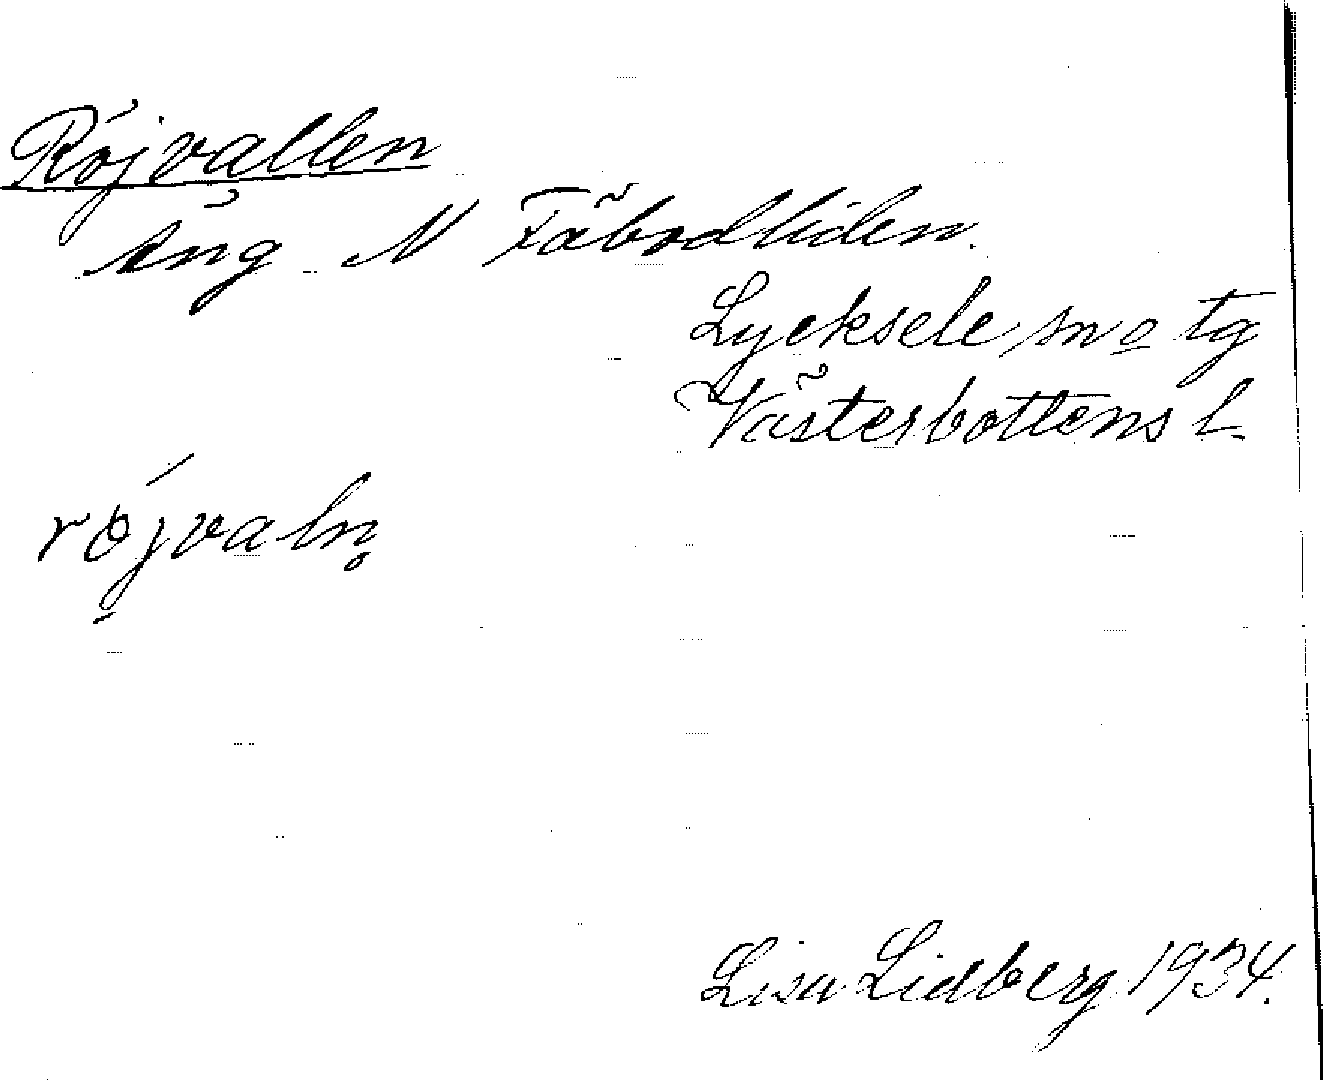 Röjvallen
äng N Fäbodliden.
Lycksele sn o tg
Västerbottens l.
röjvaln̥
Lisa Lidberg 1934.